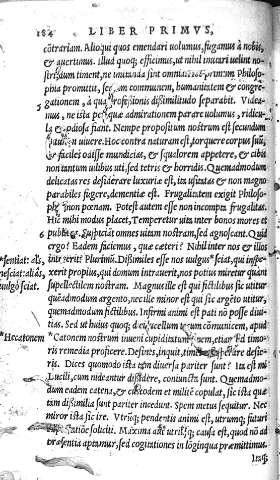 184 LIBER PRIMVS,
cõtrariam. Alioqui quos emendari volumus, fugamus à nobis,
& auertimus. Illud quoq; efficimus, ut nihil imitari uelint no-
strũ, dum timent, ne imitanda sint omnia. Hoc primum Philoso-
phia promittit, sensum communem, humanitatem & congre-
gationem, à qua professionis dissimilitudo separabit. Videa-
mus, ne ista per quæ admirationem parare volumus, ridicu-
la & odiosa sint. Nempe propositum nostrum est secundum
naturam uiuere. Hoc contra naturam est, torquere corpus suũ,
& faciles odisse mundicias, & squalorem appetere, & cibis
non tantum uilibus uti, sed tetris & horridis. Quemadmodum
delicatas res desiderare luxuriæ est, ita usitatas & non magno
parabiles fugere, dementiæ est. Frugalitatem exigit Philoso-
phia, non pœnam. Potest autem esse non incompta frugalitas.
Hic mihi modus placet, Temperetur uita inter bonos mores et
publicos. Suspiciãt omnes uitam nostram, sed agnoscant. Quid
ergo? Eadem faciemus, quæ cæteri? Nihil inter nos & illos
intererit? Plurimũ. Dissimiles esse nos uulgus *sciat, qui inspe-
xerit propius, qui domum intrauerit, nos potius miretur quàm
supellectilem nostram. Magnus ille est qui fictilibus sic utitur
quæadmodum argento, nec ille minor est qui sic argẽto utitur,
quemadmodum fictilibus. Infirmi animi est pati nõ posse diui-
tias. Sed ut huius quoq; diei lucellum tecum cõmunicem, apud
*Catonem nostrum inueni cupiditatum finem, etiam ad timo-
ris remedia proficere. Desines, inquit, timere, si sperare desie-
ris. Dices quomodo ista tam diuersa pariter sunt? Ita est mi
Lucili, cum uideantur dissidere, coniuncta sunt. Quemadmo-
dum eadem catena, & custodem et militẽ copulat, sic ista quæ
tam dissimilia sunt pariter incedunt. Spem metus sequitur. Nec
miror ista sic ire. Vtrũq; pendentis animi est, utrumq; futuri
expectatiõe soliciti. Maxima autẽ utriusq; causa est, quod nõ ad
præsentia aptamur, sed cogitationes in longinqua præmittimus.
Itaq;
*sentiat: als,
nesciat: aliàs,
vulgò sciat.
*Hecatonem